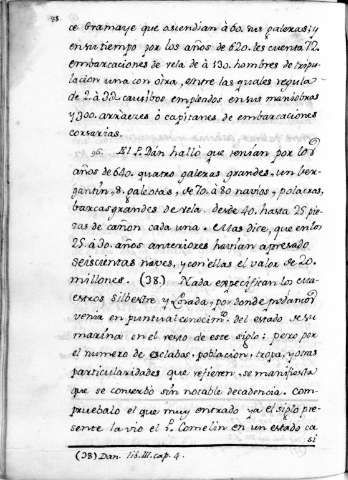 98.
ce Gramaye que ascendian à 60. sus galeras; y
en su tiempo por los años de 620. les cuenta 72.
embarcaciones de vela de à 130. hombres de tripu
lacion una con otra, entre las quales regula
de 2. à 3@. cautibos empleados en sus maniobras
y 300. arraeres ò capitanes de embarcaciones
corsarias.
96. El P. Dán halló que tenían por los
años de 640. quatro galeras grandes, un ber-
gantin, 8. galeotas, de 70. à 80 navios, polacras,
barcas grandes de vela desde 40. hasta 25. pie-
zas de cañon cada una. Mas dice, que en los
25. à 30. años anteriores havian apresado
seiscientas naves, y con ellas el valor de 20.
millones. (38.) Nada especifican los ma-
estros Silbestre y por donde podamos
venir en puntual conocim.to del estado de su
marina en el resto de este siglo; pero por
el numero de esclabos, poblacion, tropa, y otras
particularidades que refieren, se manifiesta
que se conserbó sin notable decadencia. Com-
pruebalo el que muy entrado ya el siglo pre-
sente la vio el P. Comelin en un estado ca
si
(38) Dan. lib. III. cap. 4.